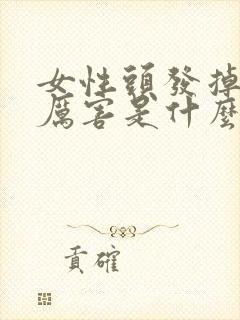 女性頭發掉
厲害是什麼
貢確